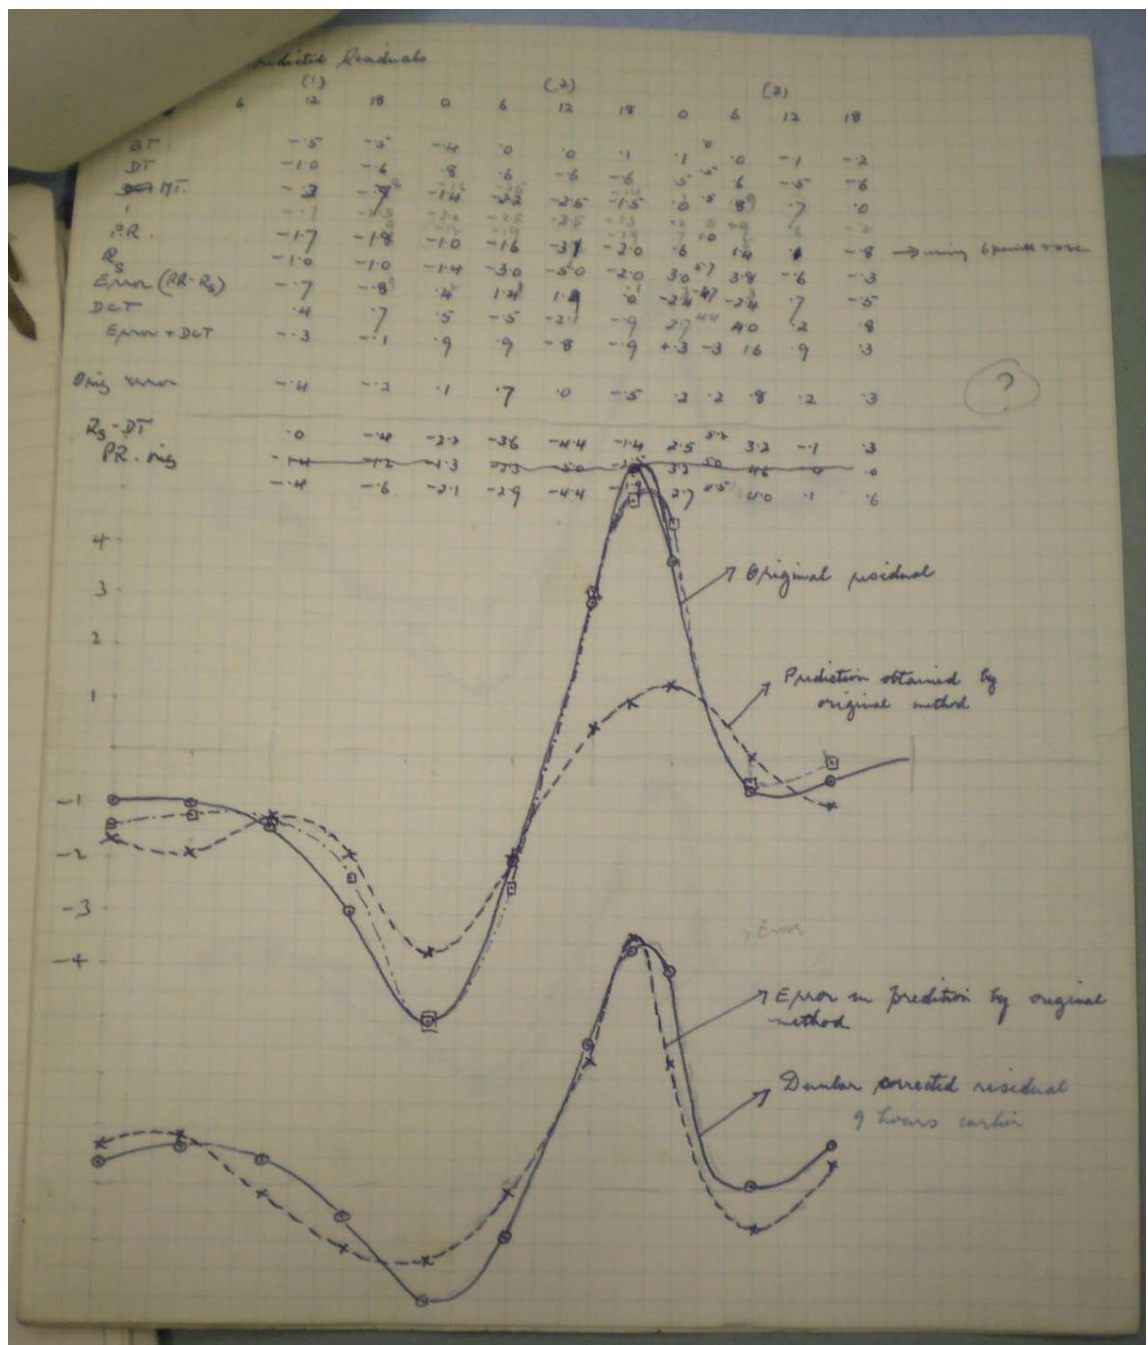 Predicted Residuals
(1) (2) (3)
6 12 18 0 6 12 18 0 6 12 18
BT. -.5 -.5 -.4 .0 .0 .1 .1 .0 .0 -.1 -.2
DT -1.0 -.6 .8 .6 -.6 -.6 .5 .5 .6 -.5 -.6
MT. -.3 -1.4 -2.2 -2.5 -1.5 .0 .8 .7 .0
P.R. -1.7 -1.8 -1.0 -1.6 -2.0 .6 1.0 1.4 -.8 → using
Rs -1.0 -1.0 -1.4 -3.0 -5.0 -2.0 3.0 5.7 3.8 -.6 -.3
Error (PR-Rs) -.7 -.8 .4 1.4 .0 -2.4 -4.7 -2.4 .7 -.5
DCT .4 .7 .5 -.5 -2.7 -.9 2.7 4.4 4.0 .2 .8
Error + DCT -.3 -.1 .9 .9 -.8 -.9 +.3 -.3 1.6 .9 .3
Orig error -.4 -.2 .1 .7 .0 -.5 .2 .2 .8 .2 .3
?
Rs-DT .0 -.4 -2.2 -3.6 -4.4 -1.4 2.5 5.2 3.2 -.1 .3
PR. orig -1.4 -1.2 -1.3 -2.3 -5.0 3.2 5.0 4.6 .0
-.4 -.6 -2.1 -2.9 -4.4 2.7 4.5 4.0 .1 .6
4
3
Original residual
2
Prediction obtained by
1
original method
-1
-2
-3
Error
-4
Error in predition by original
method
Dunbar corrected residual
9 hours earlier